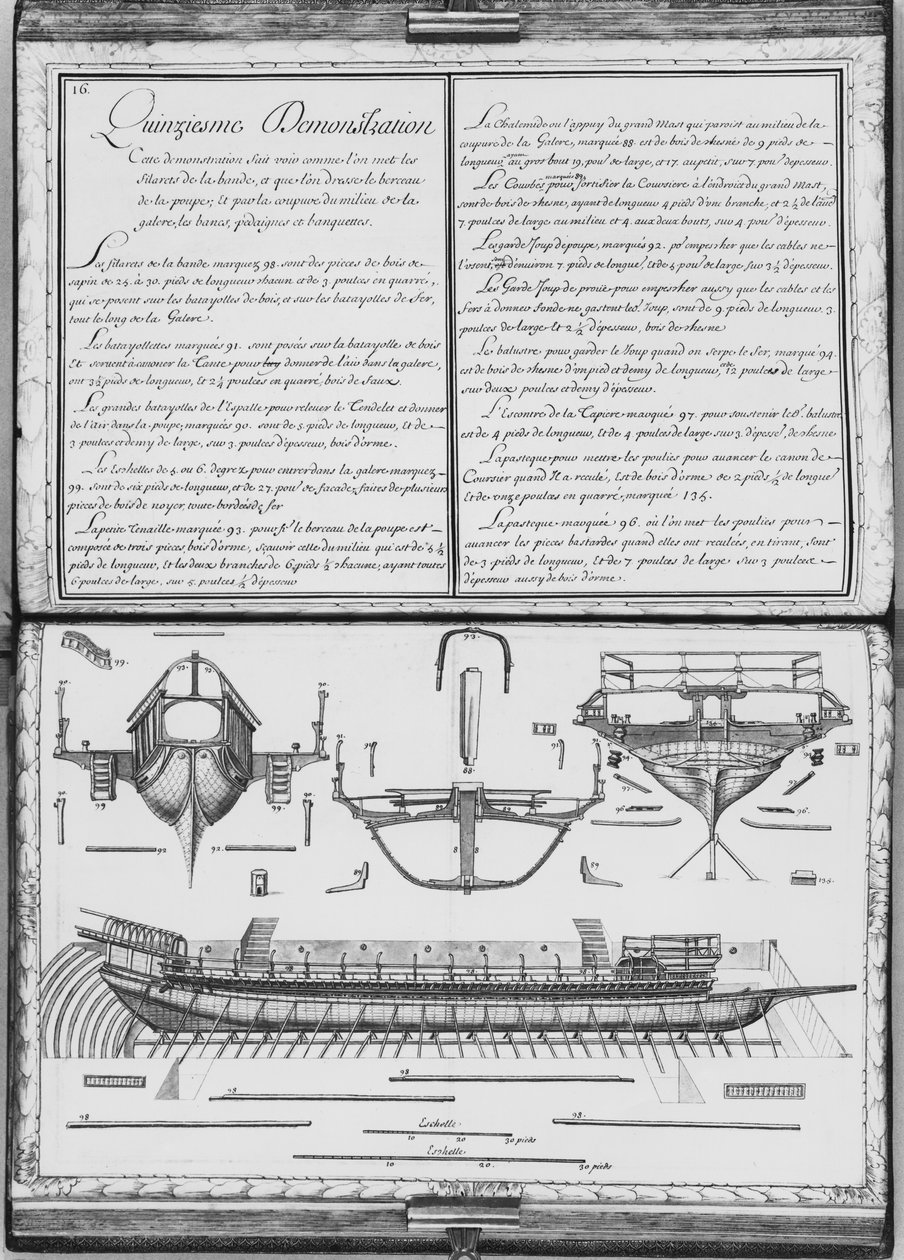 16.
Quinziesme Demonstration
Cette demonstration fait voir comme l'on met les
filarets de la bande, et que l'on dresse le berceau
de la poupe; Et par la coupure du milieu de la
galere, les bancs, pedaignes et banquettes.
Les filarets de la bande marquez 98. sont des pieces de bois de
sapin de 25. à 30. pieds de longueur chacun et de 3. poulces en quarré,
qui se posent sur les batayolles de bois, et sur les batayolles de fer,
tout le long de la Galere.
Les batayollettes marquées 91. sont posées sur la batayolle de bois
Et servent à amorer la Tante pour donner de l'air dans la galere,
ont 3½ pieds de longueur, et 2¼ poulces en quarré, bois de faux.
Les grandes batayolles de l'Espalle pour relever le Tendelet et donner
de l'air dans la poupe; marquées 90. sont de 5. pieds de longueur, Et de
3 poulces et demy de large, sur 3. poulces d'epesseur, bois d'orme.
Les Eschelles de 5. ou 6. degrez pour entrer dans la galere marquez
99. sont de six pieds de longueur, et de 27. pou.^r de facade, faites de plusieurs
pieces de bois de noyer, toute bordées de fer
La petite Tenaille marquée 93. pour le berceau de la poupe est
composée de trois pieces bois d'orme, sçavoir celle du milieu qui est de 5½
pieds de longueur, Et les deux branches de 6 pieds ½ chacune, ayant toutes
6 poulces de large, sur 5. poulces ½ d'epesseur
La Chatemide ou l'appuy du grand Mast qui paroist au milieu de la
coupure de la Galere, marquée 88. est de bois de chesne de 9 pieds de
longueur ayant au gros bout 19, pou.^r de large, et 17. au petit, sur 7. pou.^r d'epesseur.
Les Courbes marquées 89, pour fortifier la Coursiere à l'endroict du grand Mast,
sont de bois de chesne, ayant de longueur 4 pieds d'une branche, et 2½ de l'autre
7. poulces de large au milieu et 4. aux deux bouts, sur 4. pou.^r d'epesseur.
Les garde Joup de poupe, marqués 92. po.^r empescher que les cables ne
l'usent, sont d'environ 7. pieds de longue.^r, Et de 5 pou.^r de large sur 3½ d'epesseur.
Les Garde Joup de proüe pour empescher aussy que les cables et les
fers à donner fonde ne gastent le.^d Joup, sont de 9. pieds de longueur. 3.
poulces de large Et 2½ d'epesseur, bois de chesne
Le balustre pour garder le Joup quand on serpe le fer, marqué 94.
est de bois de chesne d'un pied et demy de longueur, et de 12 poulces de large
sur deux poulces et demy d'epesseur.
L'Escontre de la Tapiere marqués 97. pour soustenir le.^d balustre
est de 4 pieds de longueur, Et de 4. poulces de large sur 3. d'epesse.^r, de chesne
La pasteque pour mettre les poulies pour avancer le canon de
Coursier quand Il a reculé, Est de bois d'orme de 2 pieds ½ de longue.^r
Et de onze poulces en quarré, marquée 135.
La pasteque marquée 96. où l'on met les poulies pour
avancer les pieces bastardes quand elles ont reculées, en tirant, sont
de 3 pieds de longueur, Et de 7 poulces de large sur 3 poulces
d'epesseur aussy de bois d'orme.
99.
93.
93.
93.
90.
90.
99
99
92
92.
88.
91.
91.
89
89
8
8
89
89
134
94
94
97
97
96
96
135.
98
98
98
98
98
98.
Eschelle
10
20
30 pieds
Eschelle
10
20.
30 pieds